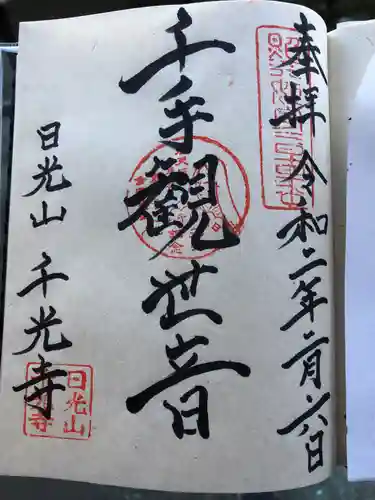 奉拝 令和二年二月六日
千手觀世音
日光山 千光寺
日光山
千光寺